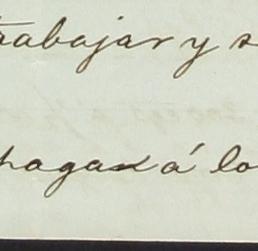 trabajar y s
pagar á lo